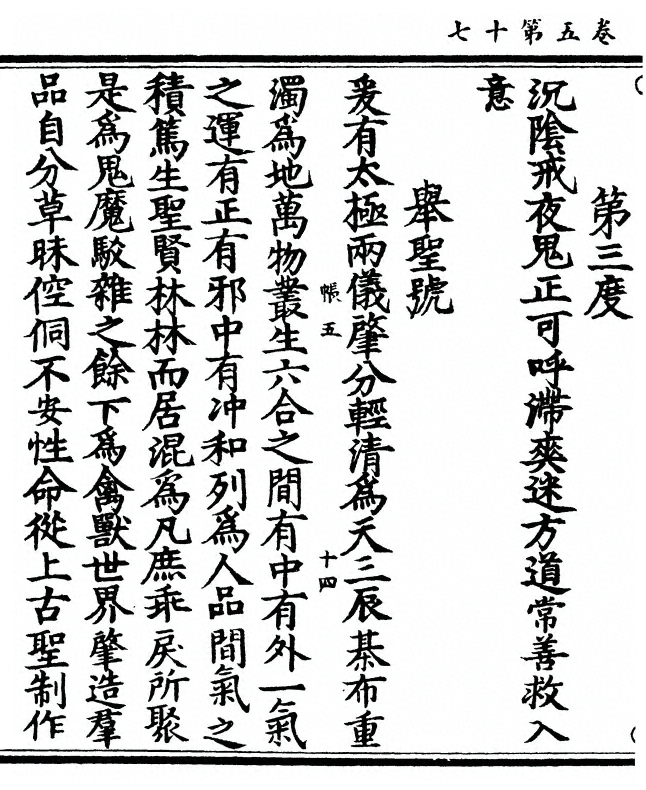 卷五第十七
第三度
沉陰戒夜鬼正可呼滯爽迷方道常善救入
意
舉聖號
爰有太極兩儀肇分輕清爲天三辰棊布重
帳五 十四
濁爲地萬物叢生六合之間有中有外一氣
之運有正有邪中有冲和列爲人品間氣之
積篤生聖賢林林而居混爲凡庶乖戾所聚
是爲鬼魔駁雜之餘下爲禽獸世界肇造羣
品自分草昧倥侗不安性命從上古聖制作